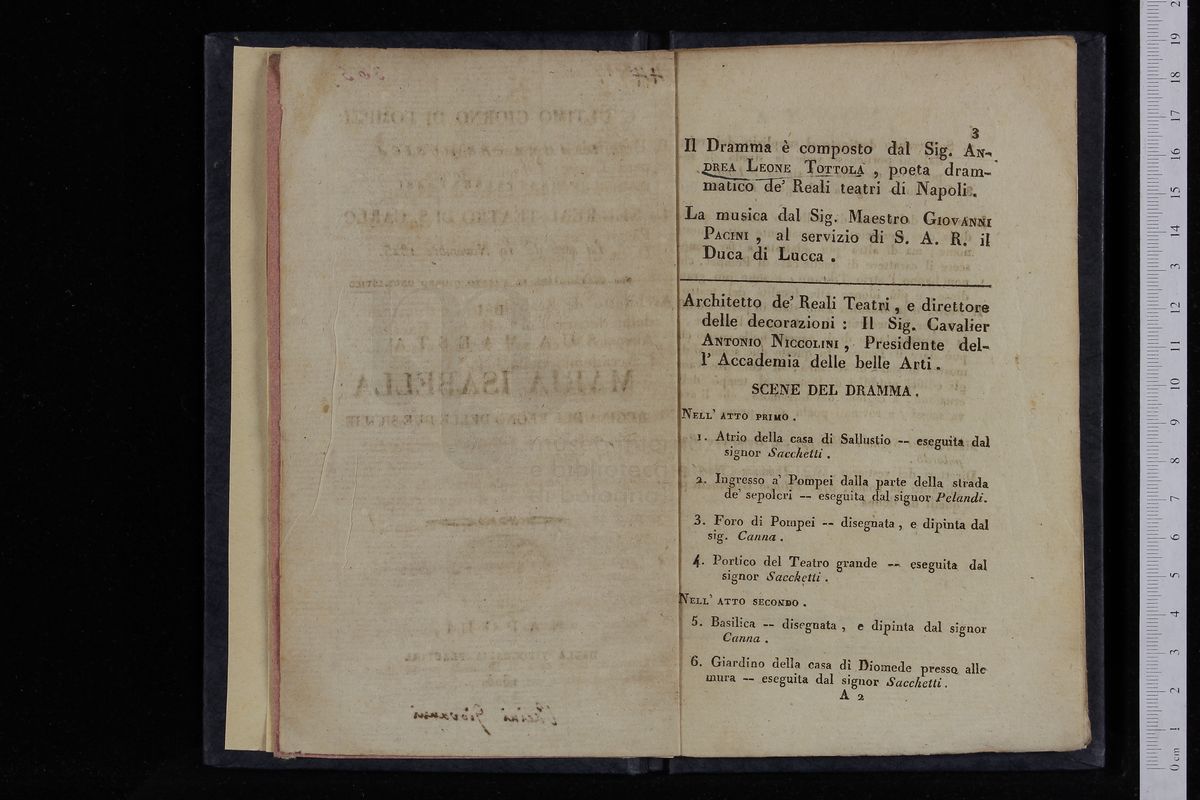 3
Il Dramma è composto dal Sig. AN-
DREA LEONE TOTTOLA , poeta dram-
matico de' Reali teatri di Napoli .
La musica dal Sig. Maestro GIOVANNI
PACINI , al servizio di S. A. R. il
Duca di Lucca .
Architetto de' Reali Teatri , e direttore
delle decorazioni : Il Sig. Cavalier
ANTONIO NICCOLINI , Presidente del-
l' Accademia delle belle Arti .
SCENE DEL DRAMMA .
NELL' ATTO PRIMO .
1. Atrio della casa di Sallustio -- eseguita dal
signor Sacchetti .
2. Ingresso a' Pompei dalla parte della strada
de' sepolcri -- eseguita dal signor Pelandi.
3. Foro di Pompei -- disegnata , e dipinta dal
sig. Canna .
4. Portico del Teatro grande -- eseguita dal
signor Sacchetti .
NELL' ATTO SECONDO .
5. Basilica -- disegnata , e dipinta dal signor
Canna .
6. Giardino della casa di Diomede presso alle
mura -- eseguita dal signor Sacchetti .
A 2